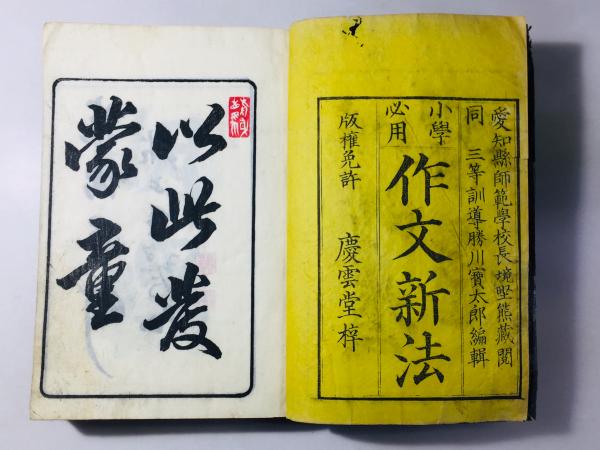 愛知縣師範學校長境野熊藏閲
同 三等訓導勝川寶太郎編輯
小學
必用
作文新法
版權免許 慶雲堂梓
以此發
蒙童